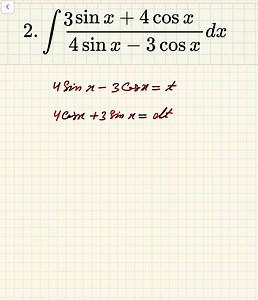 2. ∫ (3 sin x + 4 cos x)/(4 sin x − 3 cos x) dx
4 Sin x − 3 Cos x = t
4 Cos x + 3 Sin x = dt